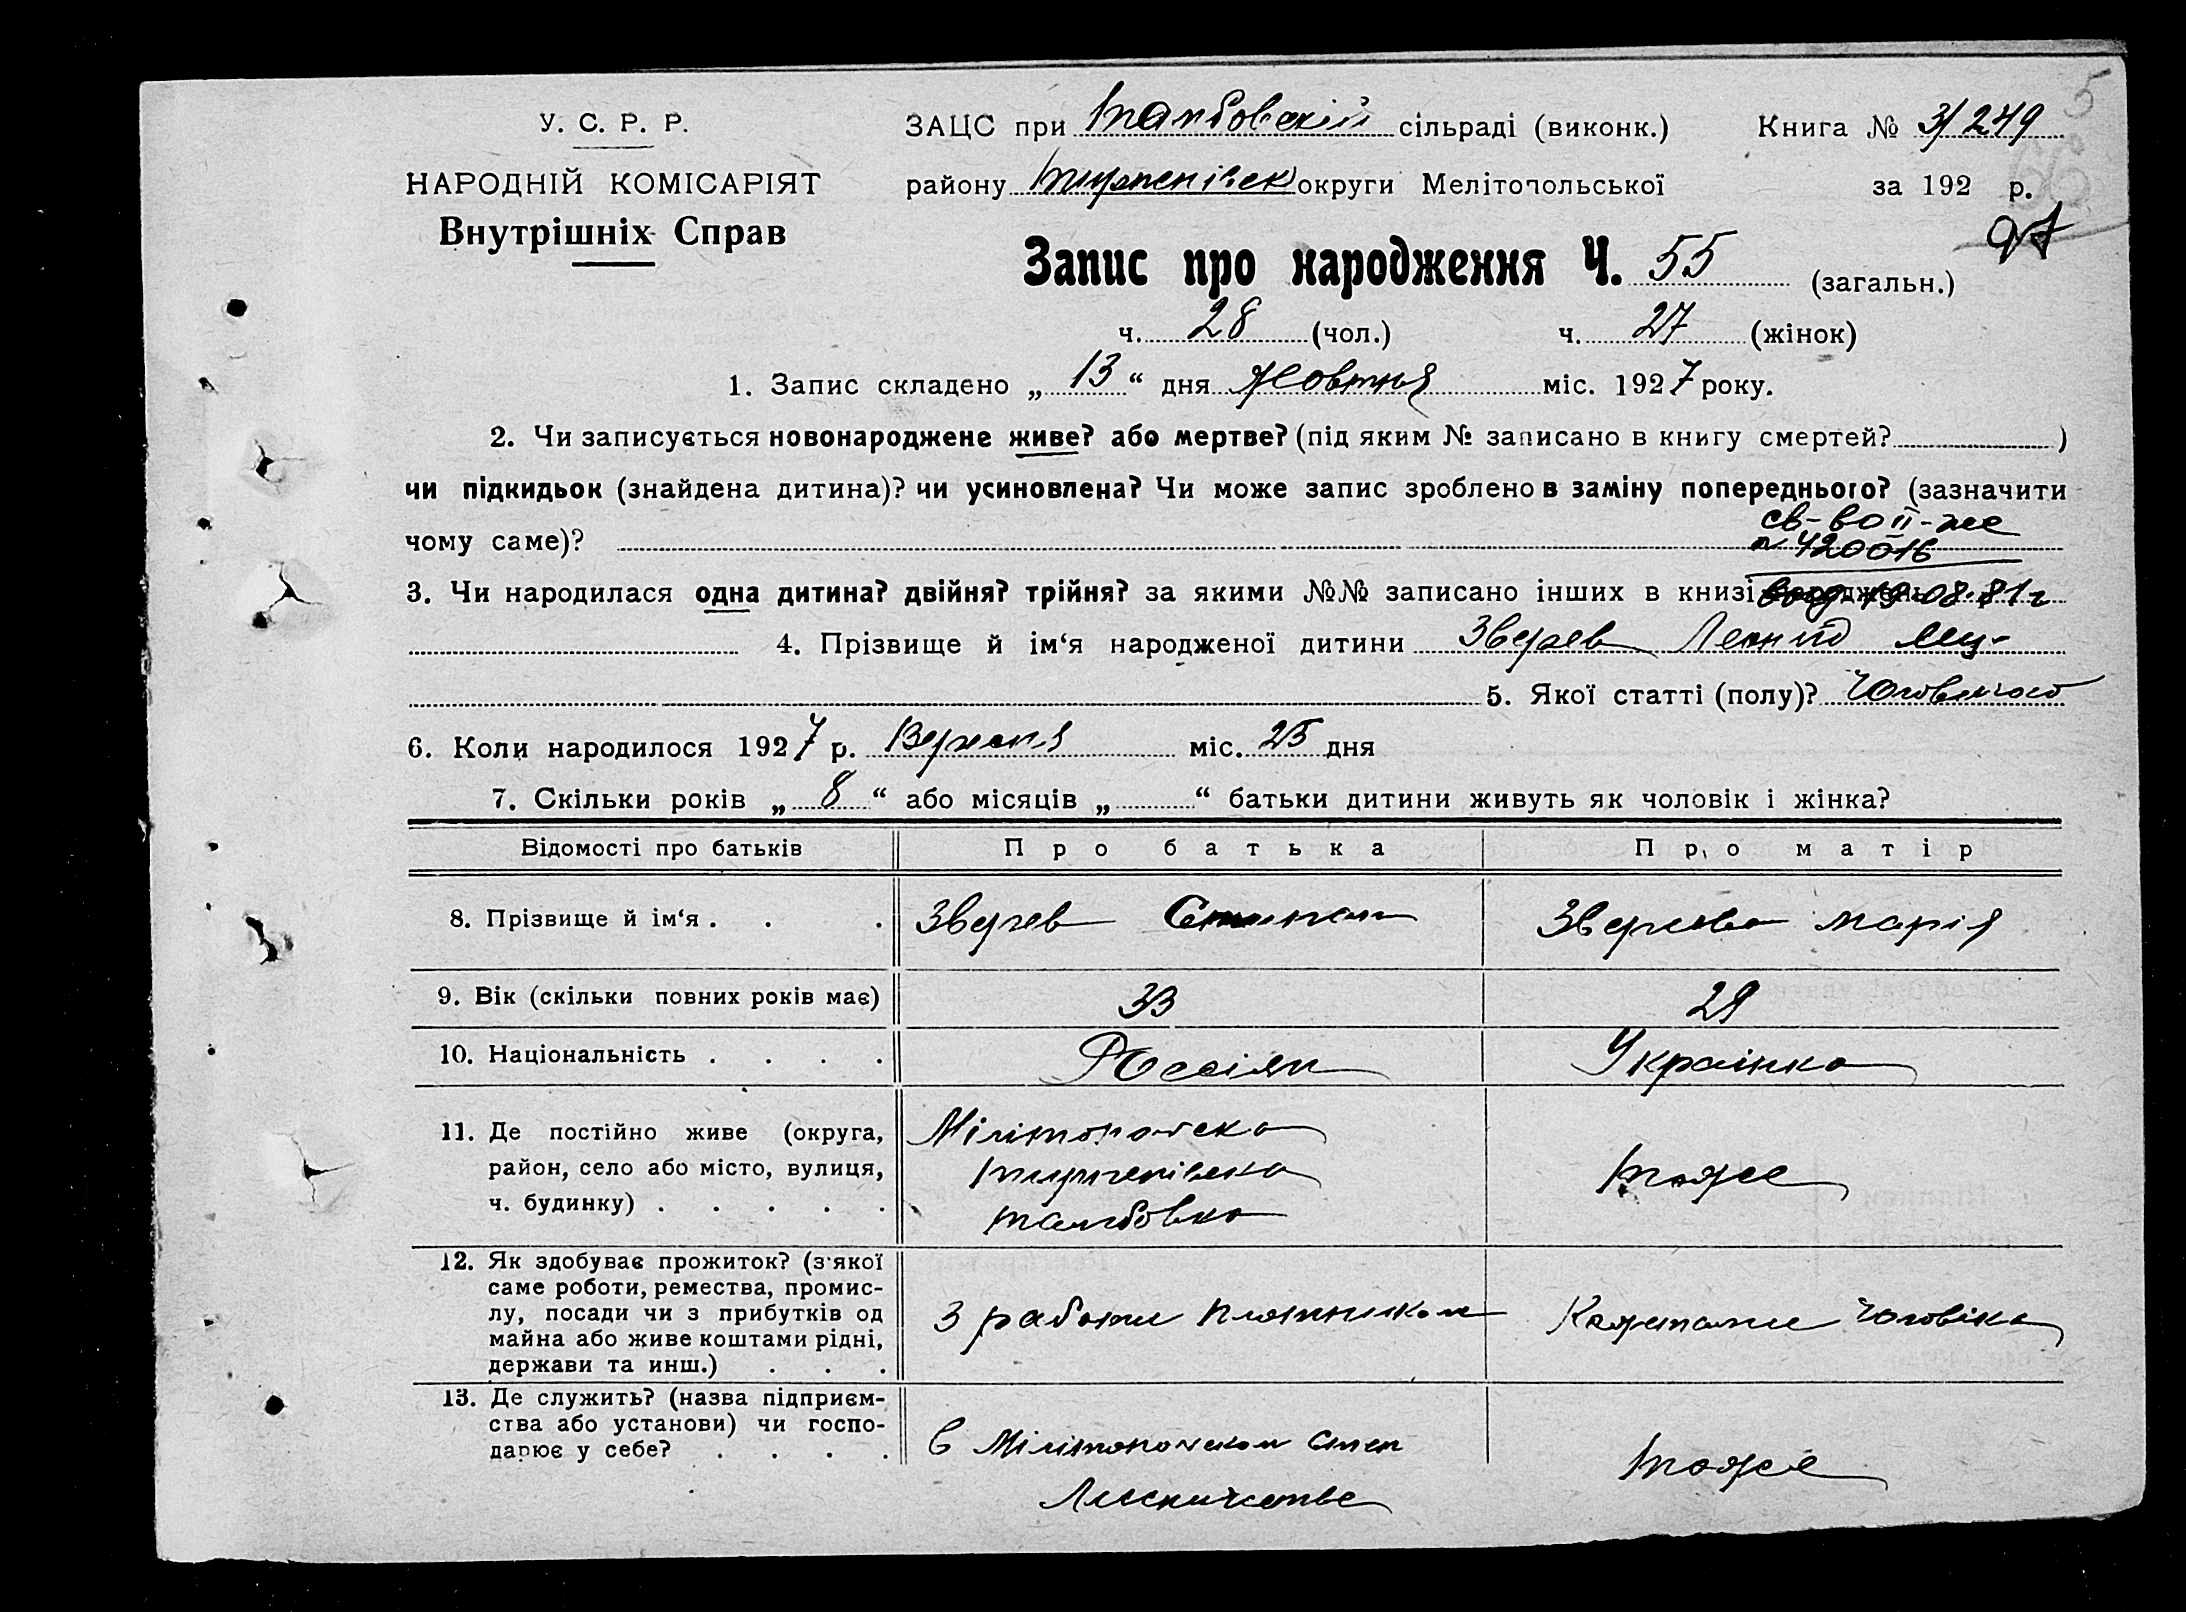 5
У. С. Р. Р.
НАРОДНІЙ КОМІСАРІЯТ
Внутрішніх Справ
ЗАЦС при Тамбовскій сільраді (виконк.) Книга № 3/249
району округи Мелітопольської за 192 р.
27
Запис про народження Ч. 55 (загальн.)
ч. 28 (чол.) ч. 27 (жінок)
1. Запис складено „ 13 “ дня Жовтня міс. 1927 року.
2. Чи записується новонароджене живе? або мертве? (під яким № записано в книгу смертей? )
чи підкидьок (знайдена дитина)? чи усиновлена? Чи може запис зроблено в заміну попереднього? (зазначити
чому саме)?
св-во ІІ-
№ 420016
3. Чи народилася одна дитина? двійня? трійня? за якими №№ записано інших в книзі народжень
19.08.81г
4. Прізвище й ім‘я народженої дитини Зверев Леонид
5. Якої статті (полу)? Чоловічого
6. Коли народилося 1927 р. Вересня міс. 25 дня
7. Скільки років „ 8 “ або місяців „ “ батьки дитини живуть як чоловік і жінка?
Відомості про батьків Про батька Про матір
8. Прізвище й ім‘я . . . Зверев Степан Зверева Марія
9. Вік (скільки повних років має) 33 29
10. Національність . . . . Россіян Українка
11. Де постійно живе (округа, район, село або місто, вулиця, ч. будинку) . . . . .
Мілітопольска
Тамбовка
тоже
12. Як здобуває прожиток? (з‘якої саме роботи, ремества, промис-
лу, посади чи з прибутків од
майна або живе коштами рідні,
держави та инш.) . . .
З работи плотником
Коштами чоловіка
13. Де служить? (назва підприєм-
ства або установи) чи госпо-
дарює у себе? . . . .
в Мілітопольском степ
Лисничестве
тоже